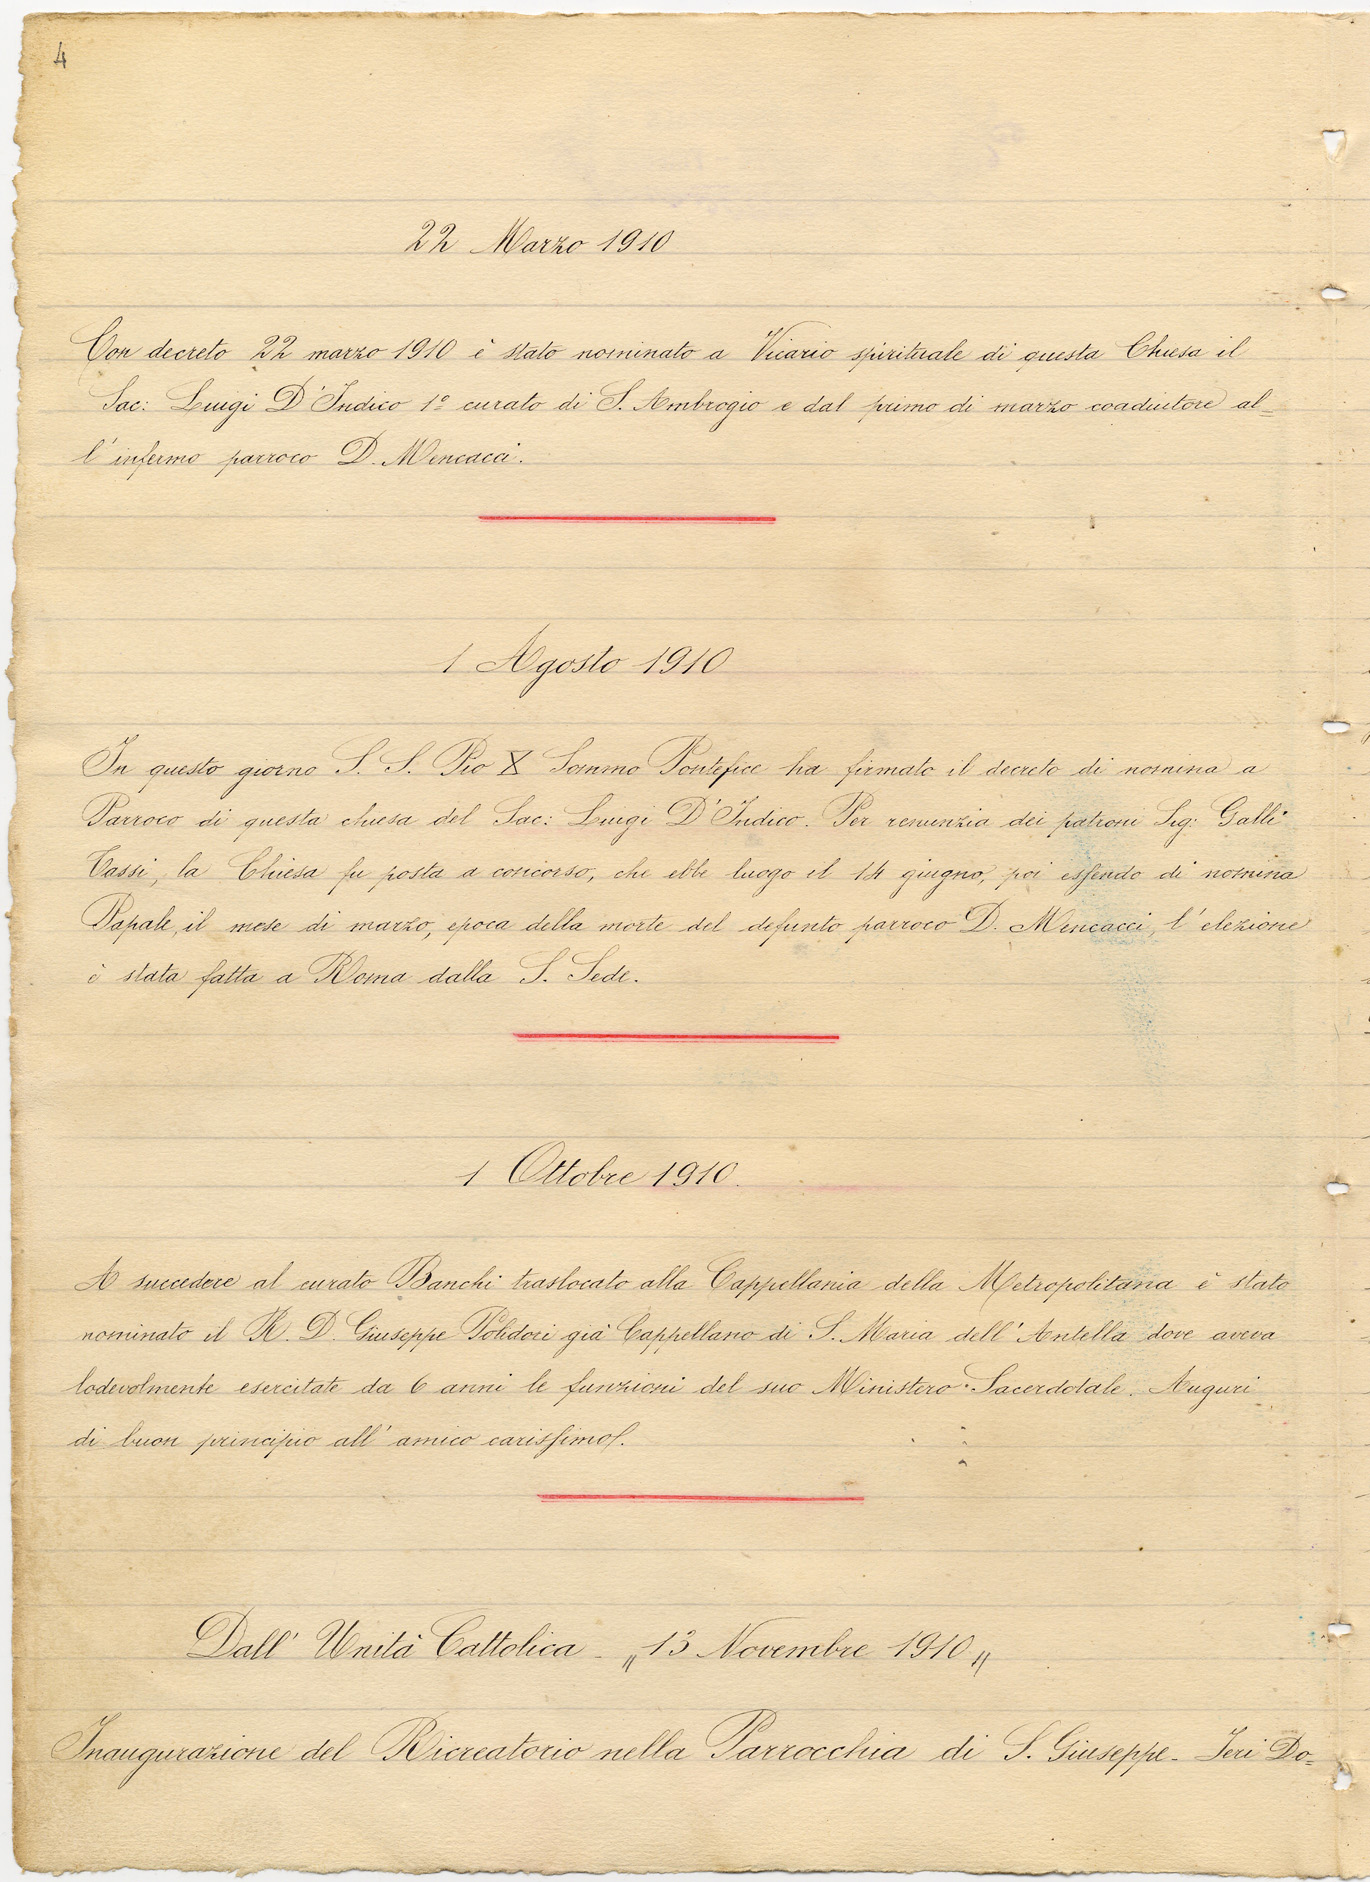 4
22 Marzo 1910
Con decreto 22 marzo 1910 è stato nominato a Vicario spirituale di questa Chiesa il
Sac: Luigi D'Indico 1º curato di S. Ambrogio e dal primo di marzo coadiutore al=
l'infermo parroco D. Mencacci.
1 Agosto 1910
In questo giorno S. S. Pio X Sommo Pontefice ha firmato il decreto di nomina a
Parroco di questa chiesa del Sac: Luigi D'Indico. Per renunzia dei patroni Sig: Galli
Tassi, la Chiesa fu posta a concorso, che ebbe luogo il 14 giugno, poi essendo di nomina
Papale, il mese di marzo, epoca della morte del defunto parroco D. Mencacci, l'elezione
è stata fatta a Roma dalla S. Sede.
1 Ottobre 1910.
A succedere al curato Banchi traslocato alla Cappellania della Metropolitana è stato
nominato il R. D. Giuseppe Polidori già Cappellano di S. Maria dell'Antella dove aveva
lodevolmente esercitate da 6 anni le funzioni del suo Ministero Sacerdotale. Auguri
di buon principio all'amico carissimo.
Dall'Unità Cattolica - „13 Novembre 1910„
Inaugurazione del Ricreatorio nella Parrocchia di S. Giuseppe - Ieri Do=